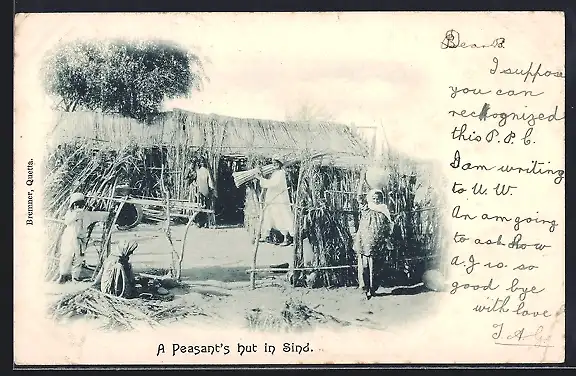 Bremner, Quetta.
Dear B.
I suppose
you can
reckognized
this P. P. C.
I am writing
to U. W.
An am going
to ask how
A. J is so
good bye
with love
A Peasant's hut in Sind.